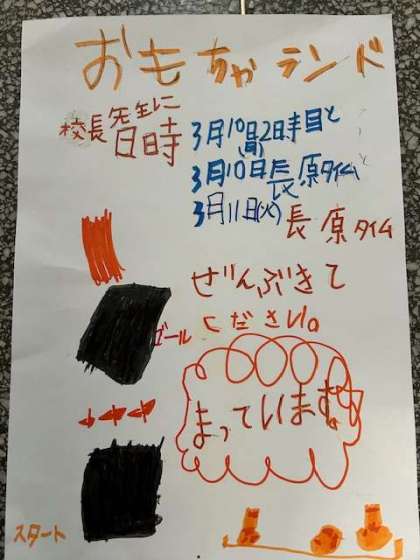 おもちゃランド
校長先生に
日時
3月10日(月)2時目と
3月10日長原タイムと
3月11日(火)長原タイム
ぜんぶきて
ください。
ゴール
まっています。
スタート